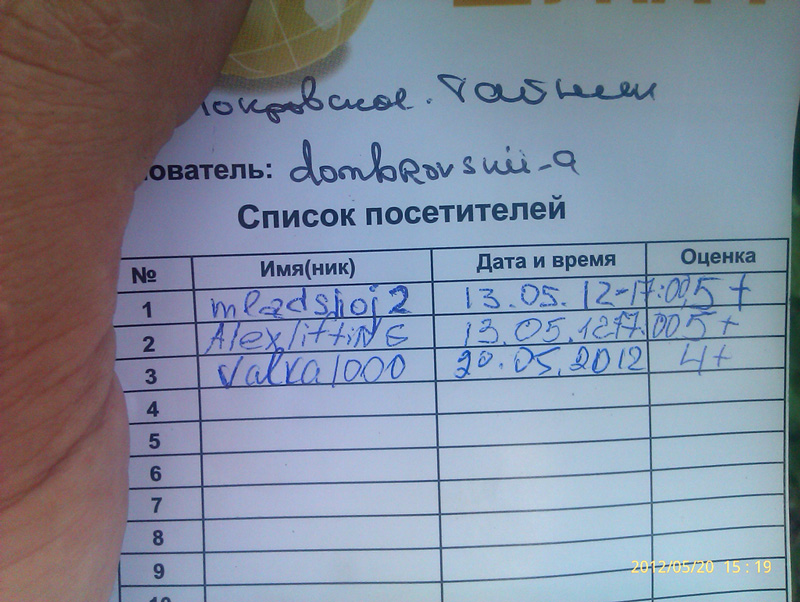 Покровское. Тайник
ователь: dombrovskii-a
Список посетителей
№ Имя(ник) Дата и время Оценка
1 mladshoj2 13.05.12-17:00 5+
2 13.05.12 17.00 5+
3 Valka1000 20.05.2012 4+
4
5
6
7
8
9
10
2012/05/20 15:19